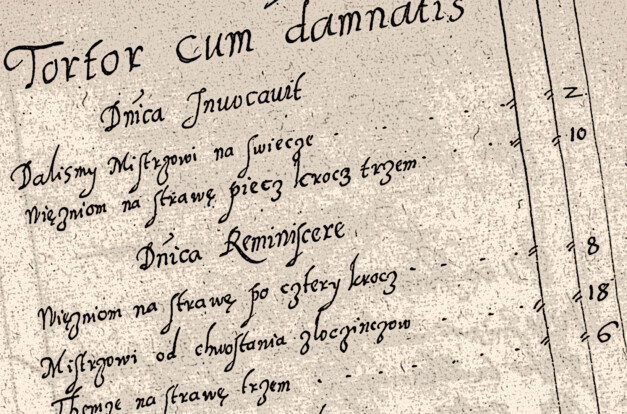 Tortor cum damnatis
Dnica Jnuocauit
Dalismy Mistrzowi na swiecze 2
Więzniom na strawę piecz krocz trzem 10
Dnica Reminiscere
Więzniom na strawę po cztery krocz 8
Mistrzowi od chwostania zloczinczow 18
Themze na strawę trzem 6